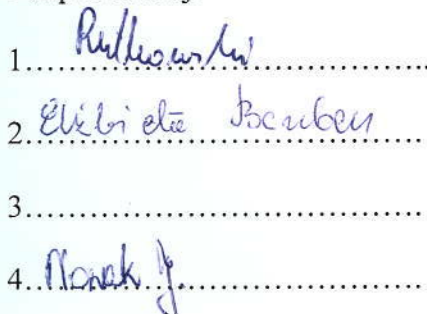 1. Rutkowski
2. Elżbieta
3.
4. Nowak J.